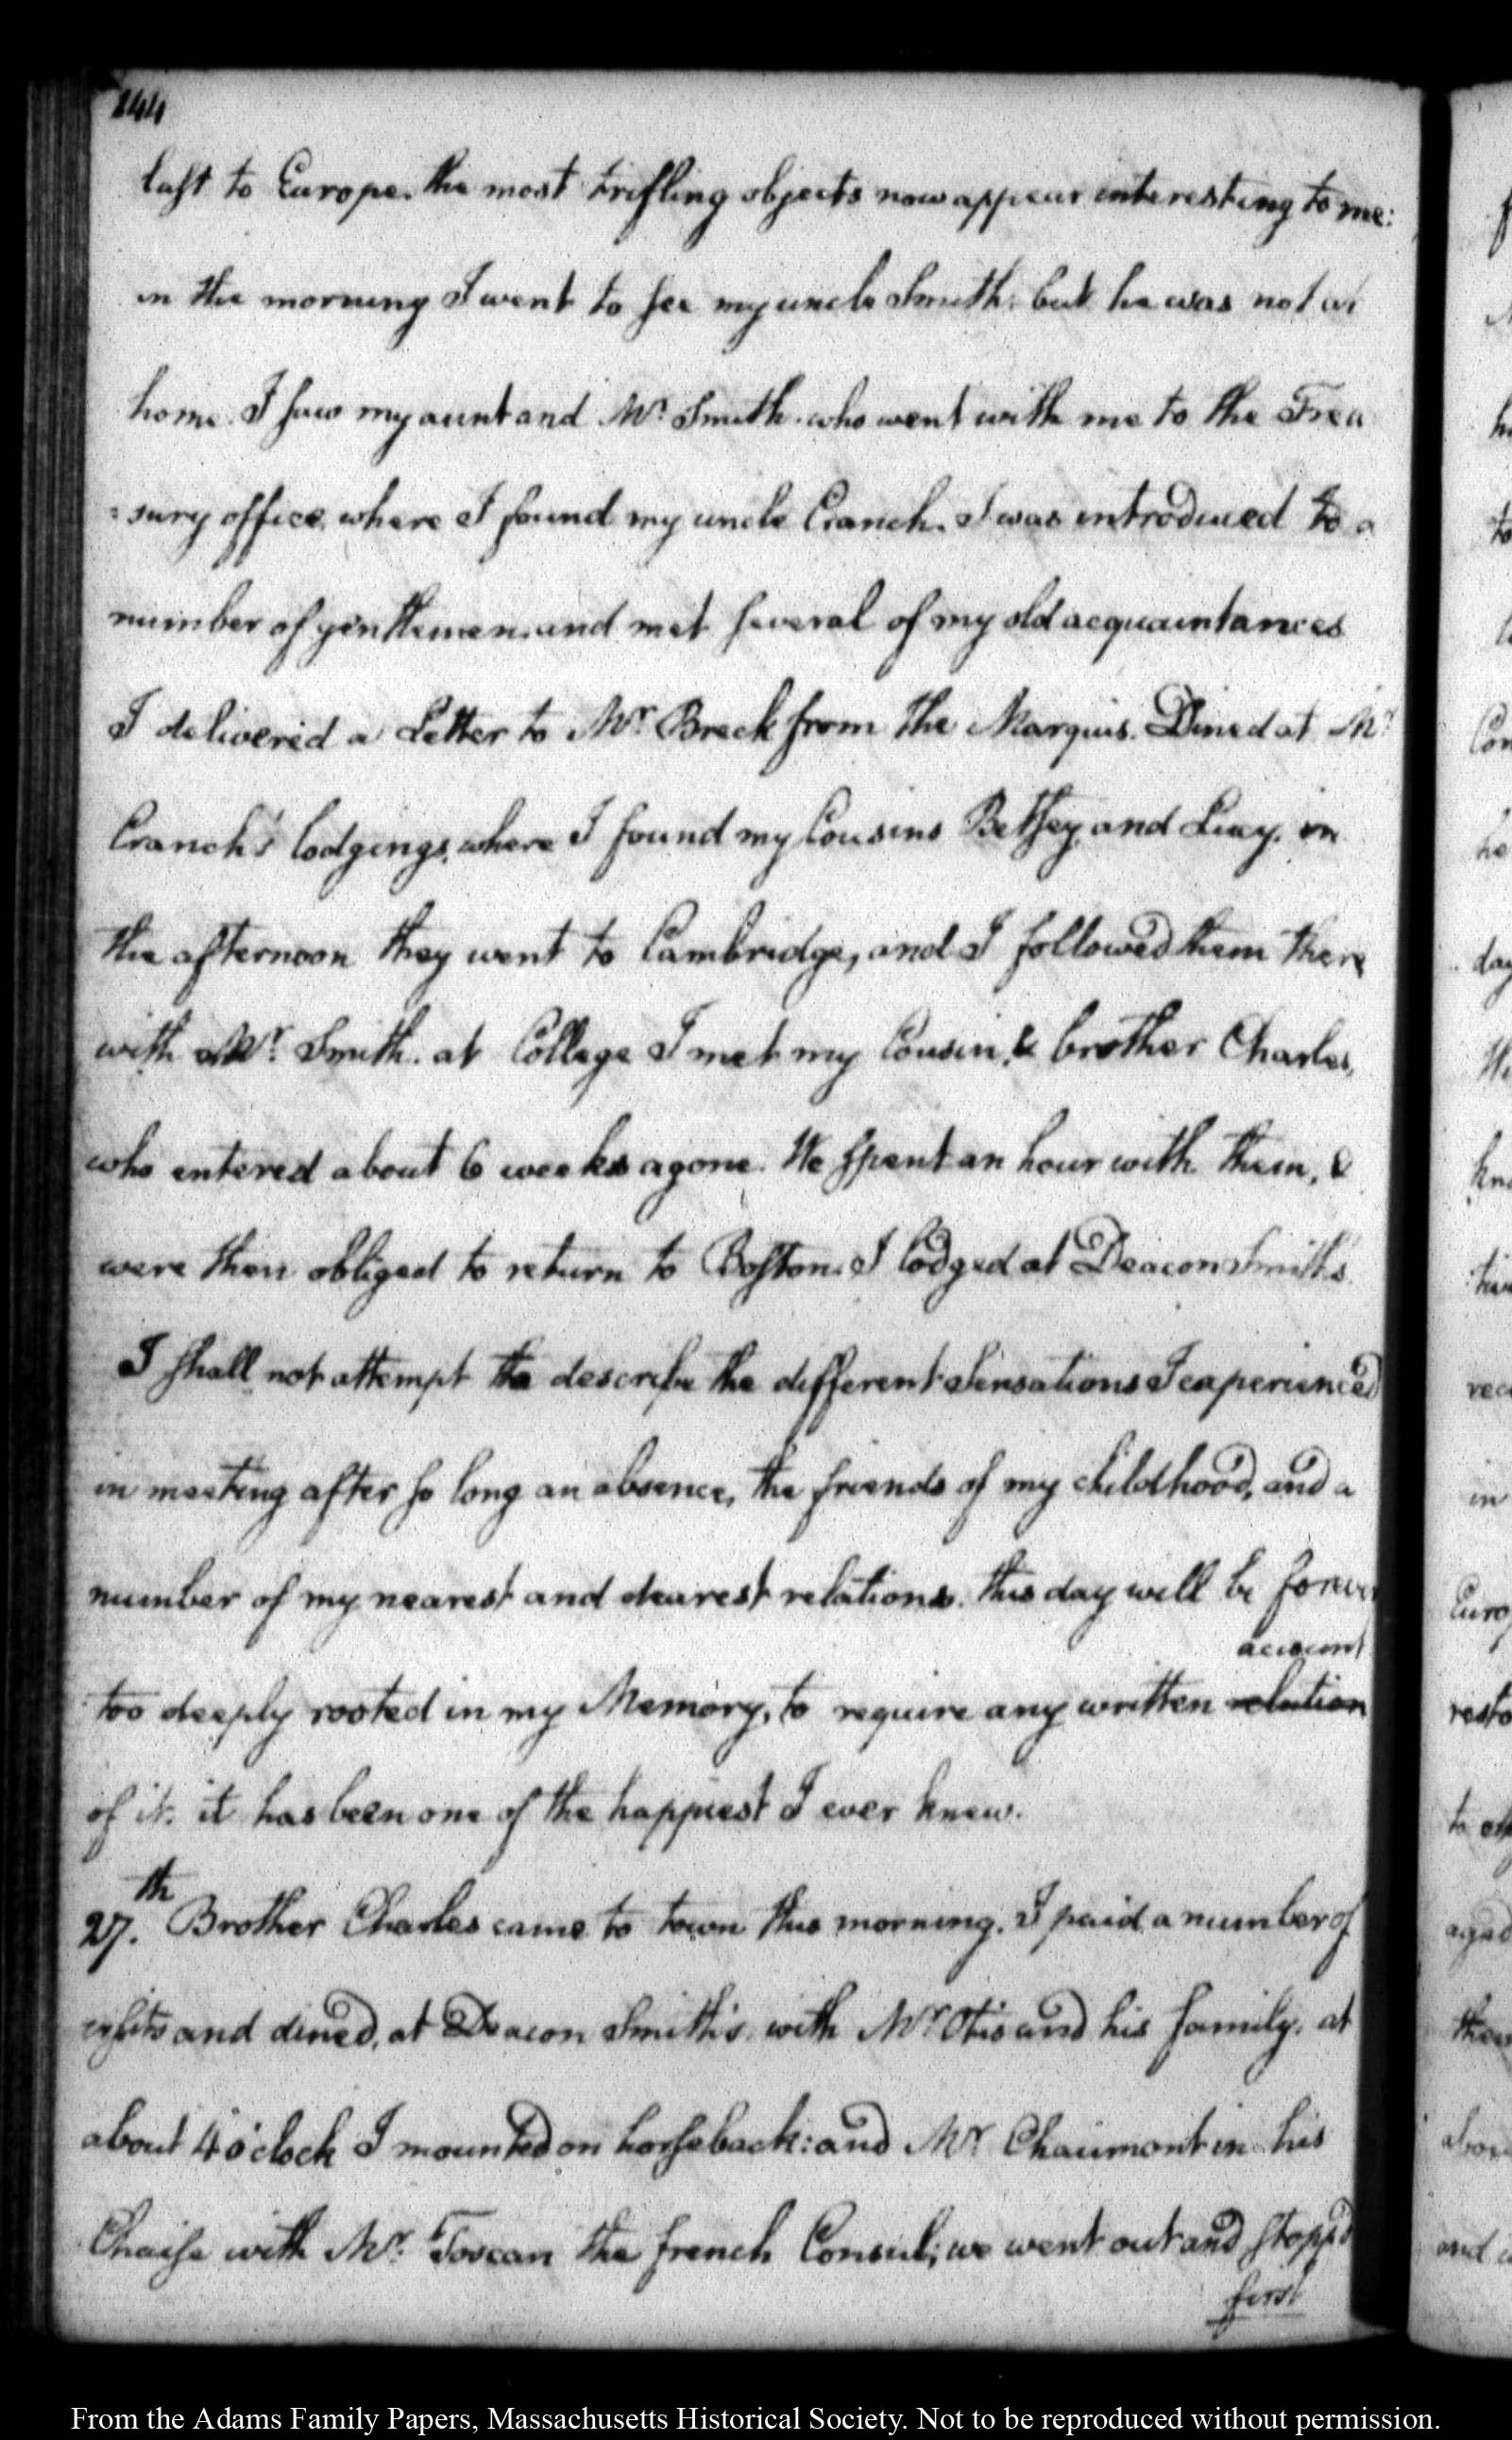 244
last to Europe. the most trifling objects now appear interesting to me:
in the morning I went to see my uncle Smith. but he was not at
home. I saw my aunt and Mr. Smith. who went with me to the Trea
=sury office, where I found my uncle Cranch. I was introduced to a
number of gentlemen. and met several of my old acquaintances
I delivered a Letter to Mr. Breck from the Marquis. Dined at Mr.
Cranch's lodgings, where I found my Cousins Betsey, and Lucy. in
the afternoon they went to Cambridge, and I followed them there
with Mr. Smith. at College I met my Cousin, & brother Charles,
who entered about 6 weeks agone. We spent an hour with them, &
were then obliged to return to Boston. I lodged at Deacon Smith's
I shall not attempt to describe the different Sensations I experienced
in meeting after so long an absence, the friends of my childhood, and a
number of my nearest and dearest relations. this day will be forever
account
too deeply rooted in my Memory, to require any written relation
of it. it has been one of the happiest I ever knew.
27.th Brother Charles came to town this morning. I paid a number of
visits and dined, at Deacon Smith's. with Mr Otis and his family. at
about 4 o'clock I mounted on horseback: and Mr. Chaumont in his
Chaise with Mr. Toscan the french Consul; we went out and stopp'd
first
From the Adams Family Papers, Massachusetts Historical Society. Not to be reproduced without permission.